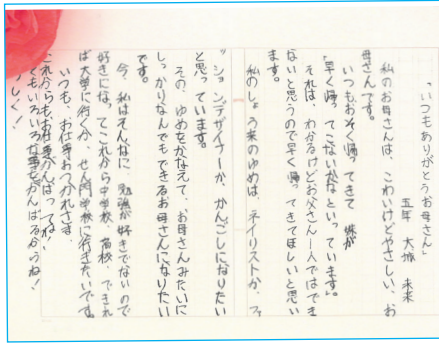 「いつもありがとうお母さん」
五年 大城 未来
私のお母さんは、こわいけどやさしい、お
母さんです。
いつもおそく帰ってきて 妹が
「早く帰ってこないかな」といっています。
それは、わかるけどお父さん一人ではでき
ないと思うので早く帰ってきてほしいと思い
ます。
私のしょう来のゆめは、ネイリストか、ファ
ッションデザイナーか、かんごしになりたい
と思っています。
その、ゆめをかなえて、お母さんみたいに
しっかりなんでもできるお母さんになりたい
です。
今、私はそんなに 勉強が好きでないので
好きになってこれから中学校、高校、できれ
ば大学に行くか、せん門学校に行きたいです。
いつも、お仕事おつかれさま
これからもお仕事がんばってね!
くもいろいろな事をがんばるからね!
しく!